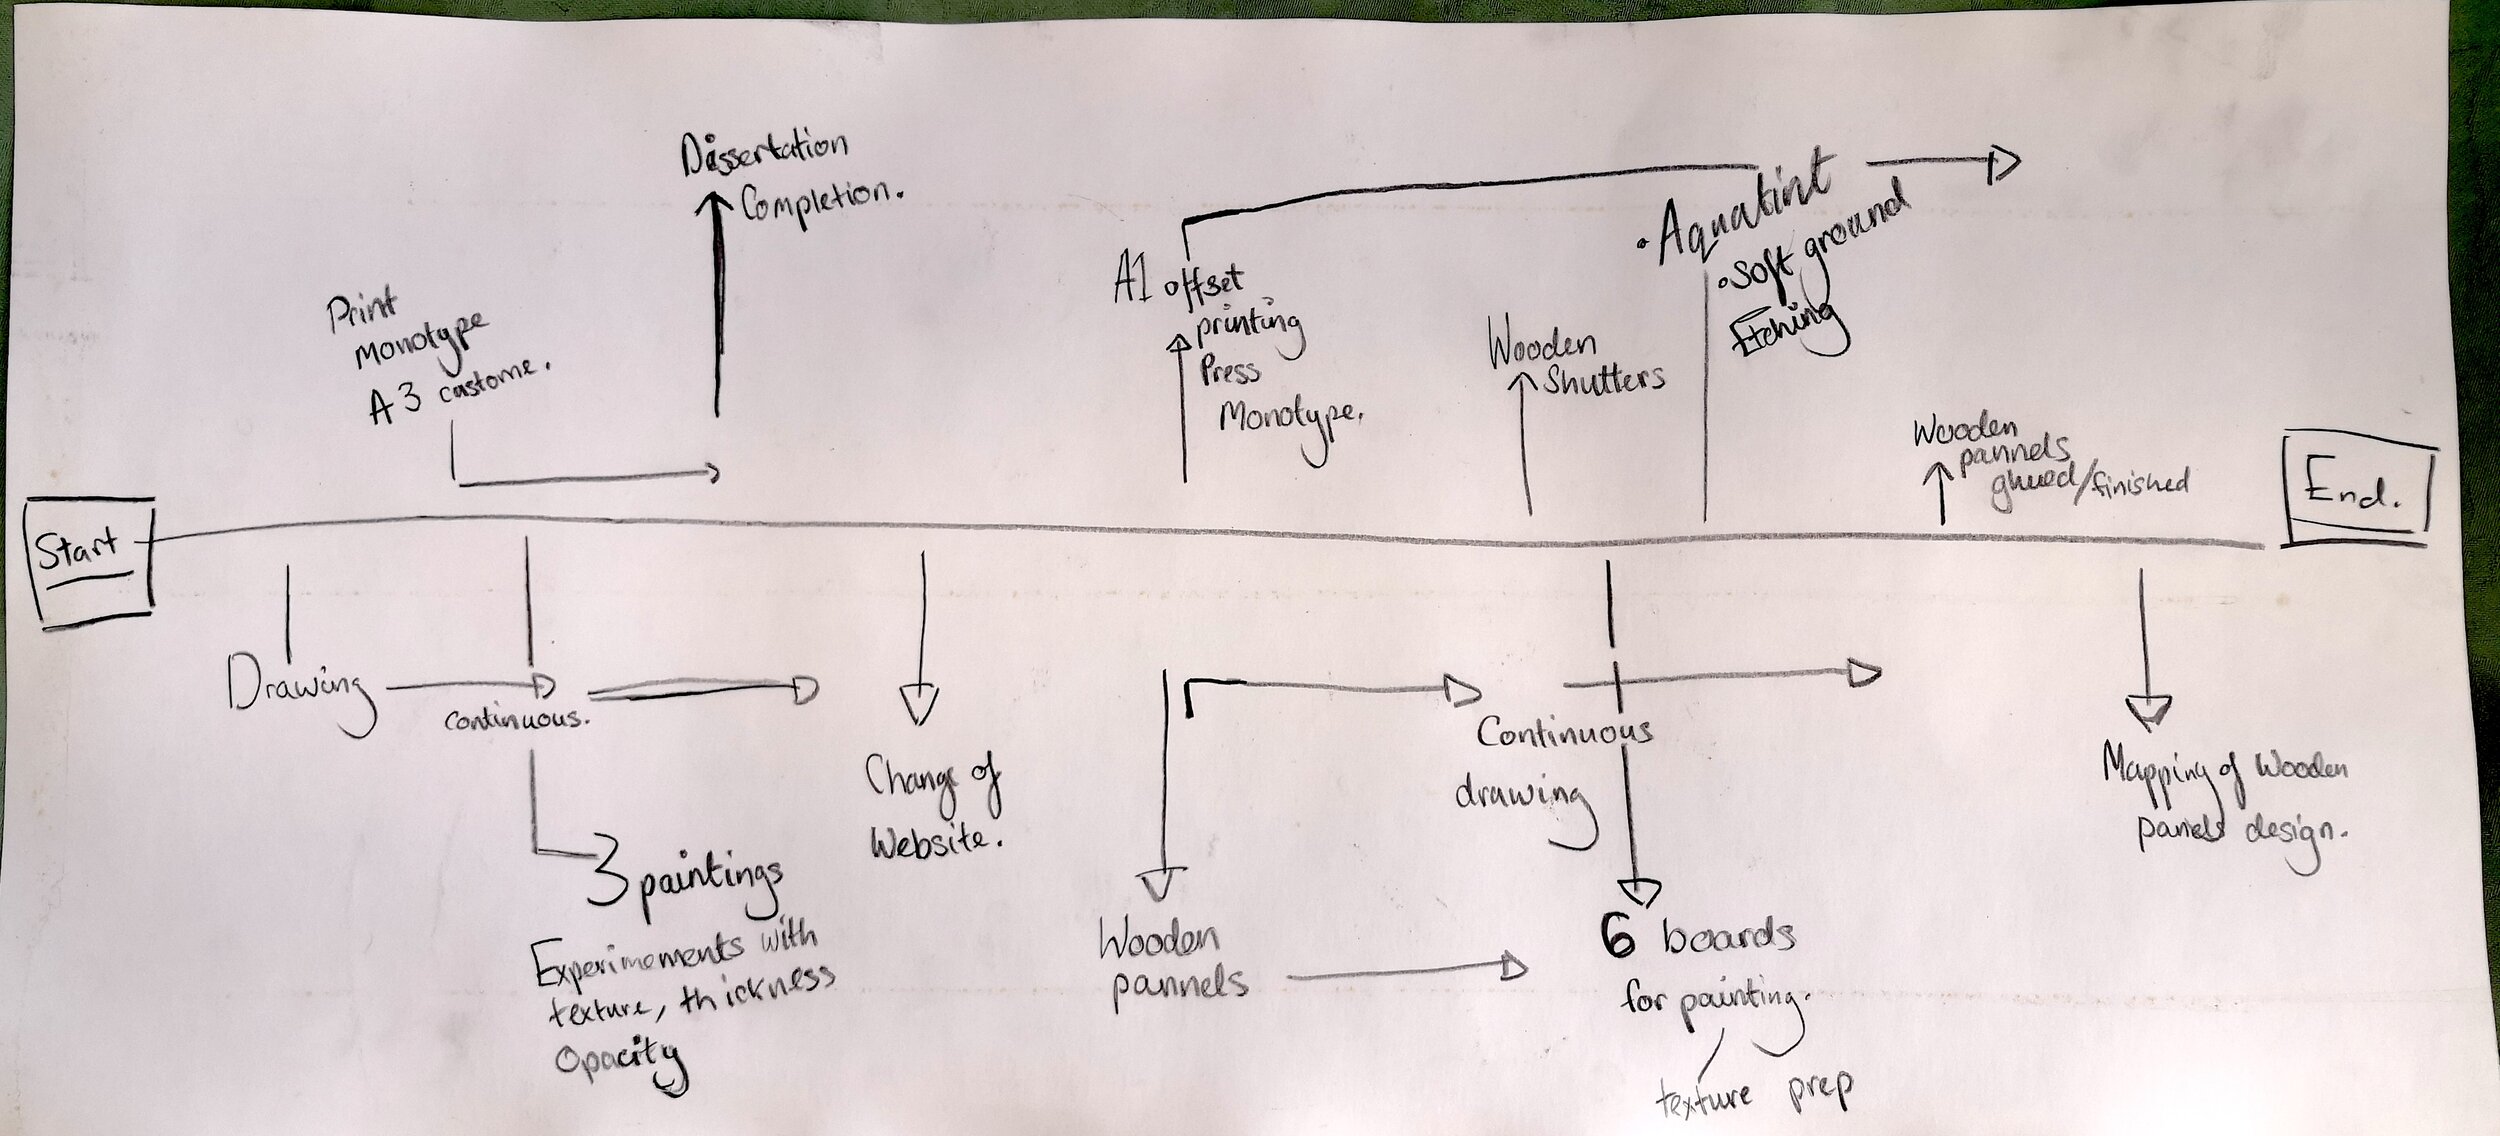 Dissertation
Completion.
Print
Monotype
A3 custome.
A1 offset
printing
Press
Monotype.
• Aquatint
• Soft ground
Etching
Wooden
Shutters
Wooden
pannels
glued/finished
Start
End.
Drawing
Continuous.
3 paintings
Experimements with
texture, thickness
Opacity
Change of
Website.
Wooden
pannels
Continuous
drawing
6 boards
for painting.
texture prep
Mapping of Wooden
panels design.